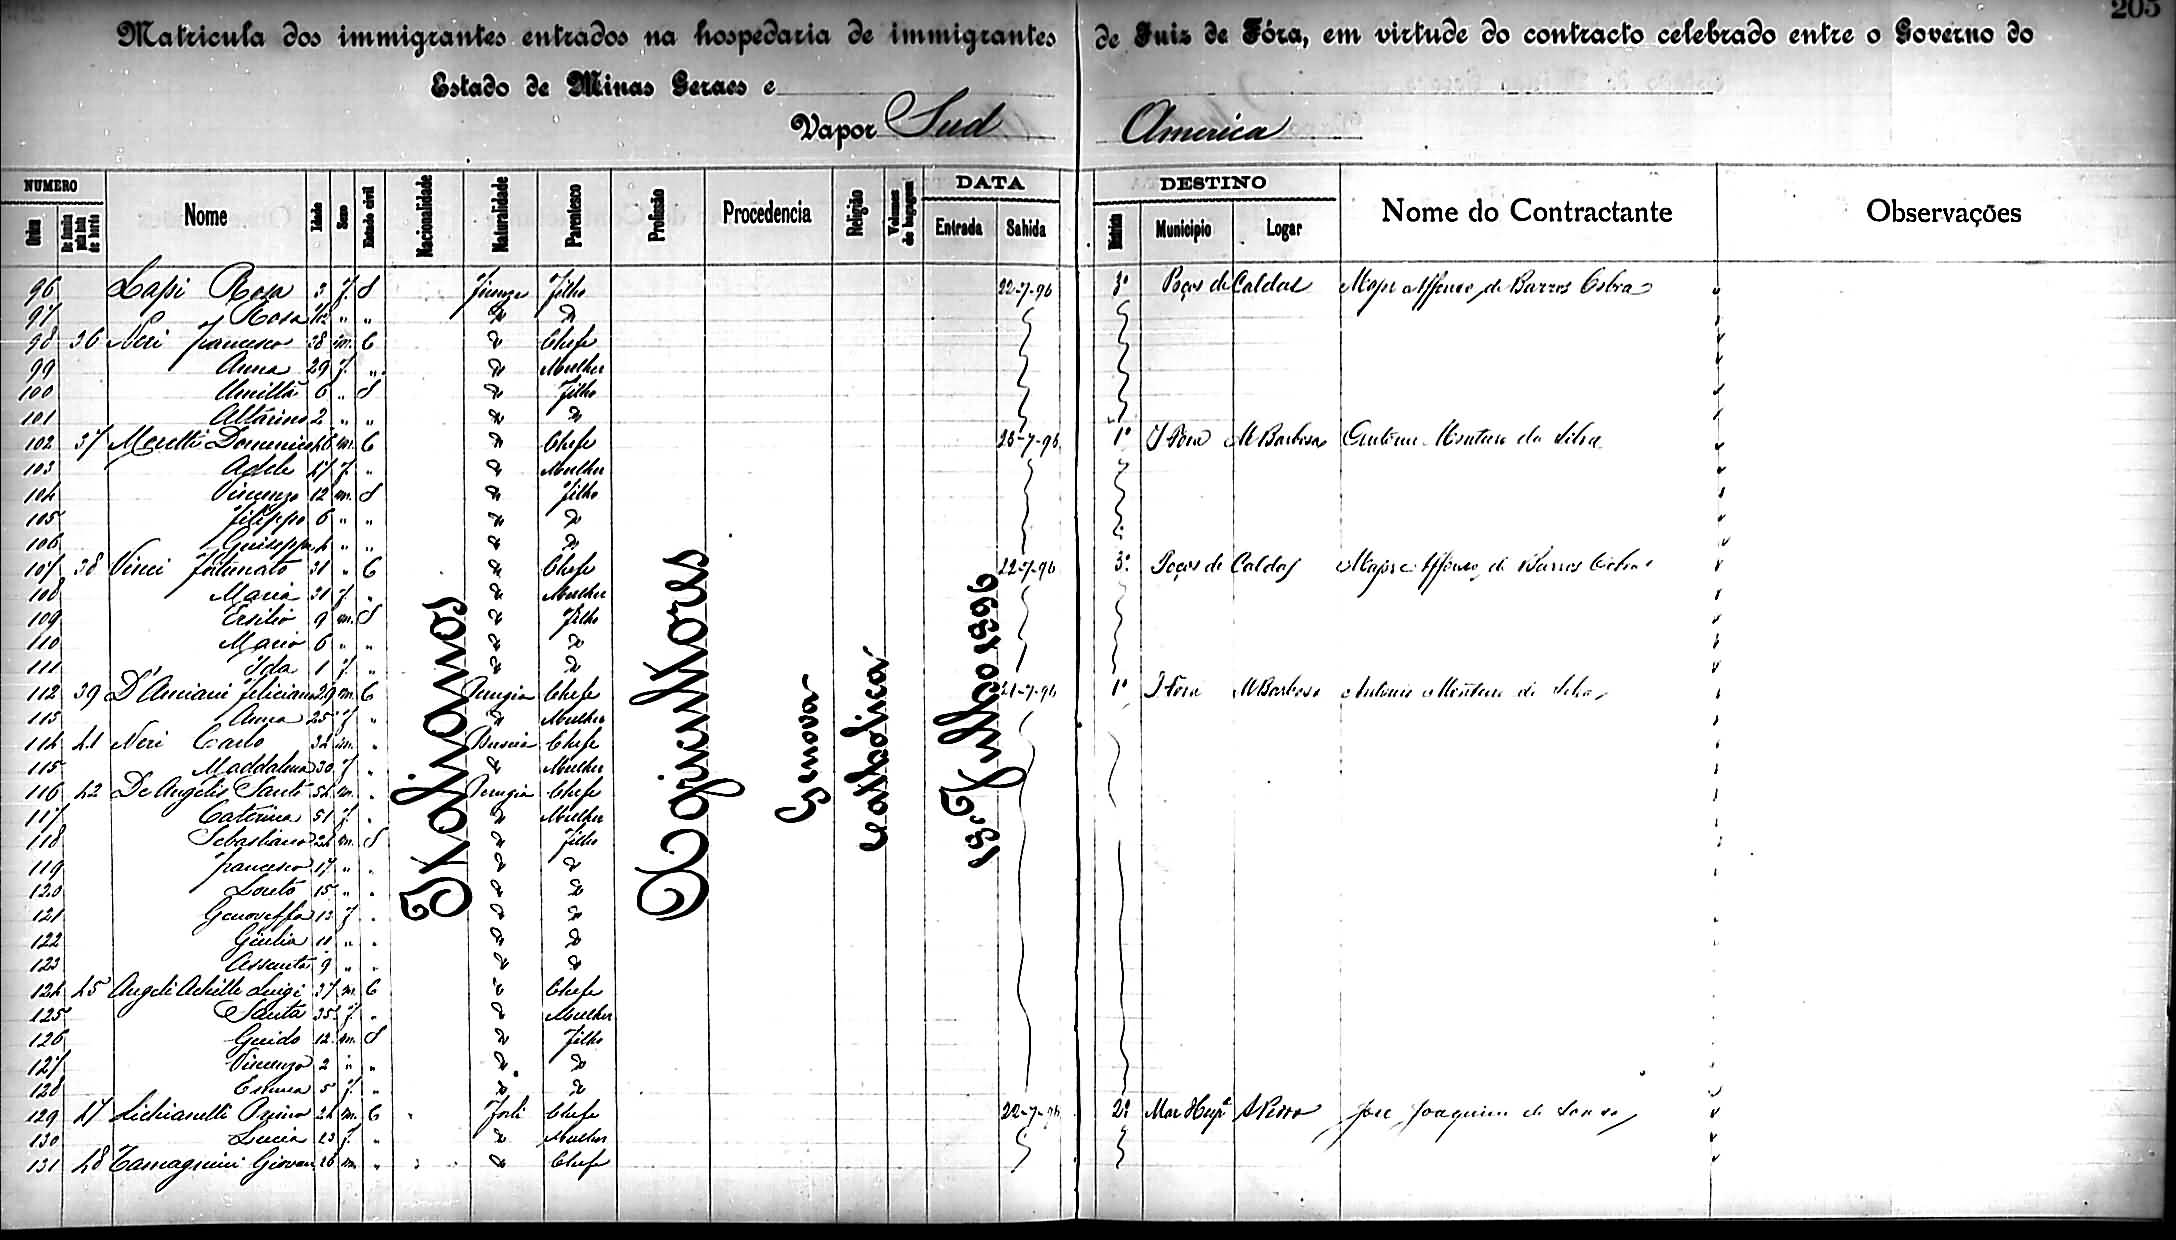 205
Matricula dos immigrantes entrados na hospedaria de immigrantes de Juiz de Fóra, em virtude do contracto celebrado entre o Governo do
Estado de Minas Geraes e
Vapor Sud America
NUMERO Nome Idade Sexo Estado civil Nacionalidade Naturalidade Parentesco Profissão Procedencia Religião Volumes de bagagem DATA DESTINO Nome do Contractante Observações
Ordem Entrada Sahida Districto Municipio Logar
Italianos
Agricultores
Genova
Catholica
13 Julho 1896
96 Lapi Rosa 3 f. S Firenze Filho 22-7-96 3º Poços de Caldas Major Affonso de Barros Cobra
97 Rosa " "
98 36 Neri Francesco 28 m. C Chefe
99 Anna 29 f. " Mulher
100 6 " S Filho
101 2 " "
102 37 Moretti Domenico 46 m. C Chefe 25-7-96 1º J Fora M Barbosa da Silva
103 Adele 47 f. " Mulher
104 Vincenzo 12 m. S Filho
105 Filippo 6 " "
106 Guiseppe 4 " "
107 38 Vinci Fortunato 31 " C Chefe 22-7-96 3º Poços de Caldas Major Affonso de Barros Cobra
108 Maria 31 f. " Mulher
109 Ersilio 9 m. S Filho
110 Mario 6 " "
111 Ida 1 f. "
112 39 D'Anciani Feliciano 29 m. C Perugia Chefe 21-7-96 1º J Fora M Barbosa Antonio da Silva
113 Anna 25 f. " Mulher
114 41 Neri Carlo 32 m. " Chefe
115 Maddalena 30 f. " Mulher
116 42 De Angelis Sante 54 m. " Perugia Chefe
117 Caterina 51 f. " Mulher
118 Sebastiano 24 m. S Filho
119 Francesco 17 " "
120 Loreto 15 " "
121 Genoveffa 13 f. "
122 Giulia 11 " "
123 Assunta 9 " "
124 45 Angeli Achille Luigi 37 m. C Chefe
125 Santa 35 f. " Mulher
126 Guido 12 m. S Filho
127 Vincenzo 2 " "
128 5 f. "
129 47 Primo 24 m. C Forli Chefe 22-7-96 2º Mar Hespª S Pedro José Joaquim de Souza
130 Lucia 23 f. " Mulher
131 48 Tamagnini Giovan 26 m. " Chefe